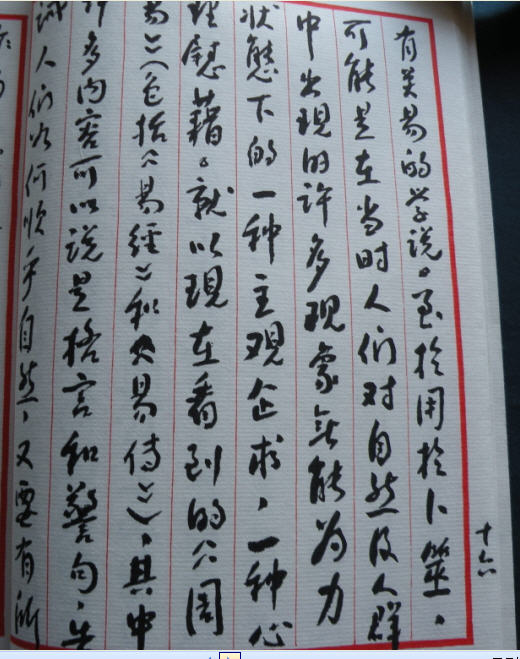 有关易的学说。至於用於卜筮,
可能是在当时人们对自然及人群
中出现的许多现象無能为力
状態下的一种主观企求,一种心
理慰藉。就以現在看到的《周
易》(包括《易經》和《易传》),其中
许多内容可以说是格言和警句,告
诫人们如何顺乎自然,又要有所
十六